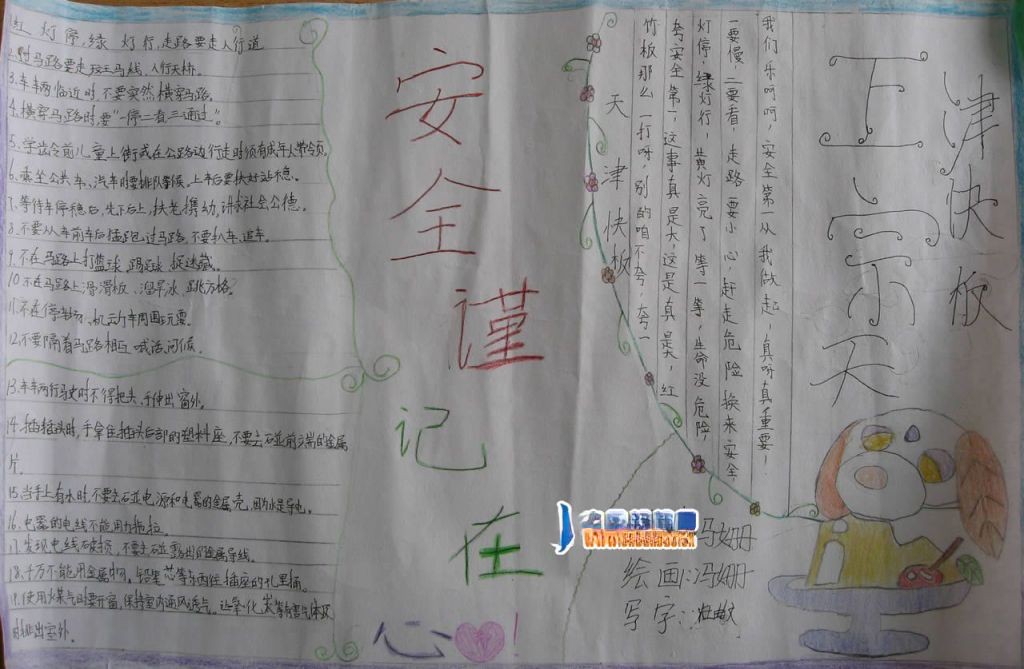 1.红灯停,绿灯行,走路要走人行道
2.过马路要走斑马线,人行天桥。
3.车车两临近时,不要突然横穿马路。
4.横穿马路时,要"一停二看三通过"。
5.学龄前儿童上街或在公路边行走时须有成年人带领。
6.乘坐公共车、汽车时要排队等候,上车后要扶好站稳。
7.等待车停稳后,先下后上,扶老携幼,讲求社会公德。
8.不要从车前车后猛跑,过马路,不要扒车、追车。
9.不在马路上打篮球、踢足球、捉迷藏。
10.不在马路上滑滑板、溜旱冰、跳方格。
11.不在停车场、机动车周围玩耍。
12.不要隔着马路相互喊话、问候。
13.车车两行驶时不得把头、手伸出窗外。
14.插插头时,手拿住插头后部的塑料座,不要去碰前端的金属
片。
15.当手上有水时,不要去碰电源和电器的金属壳,因为水是导电。
16.电器的电线不能用力拖拉。
17.发现电线破损,不要去碰露出的金属导线。
18.千万不能用金属 铅笔芯等东西往插座的孔里捅。
19.使用煤气时要开窗,保持室内通风透气。让氧化炭等有害气体及
时排出室外。
安全谨记在心!
津快板
王 宗 天
我们乐呵呵,安全第一从我做起,真呀真重要!
一要慢,二要看,走路要小心,赶走危险换来安全
灯停,绿灯行,黄灯亮了等一等,生命没危险,
夸安全第一,这事真是大,这是真是大,红
竹板那么一打呀,别的咱不夸,夸一
天津快板
冯姗
绘画:冯姗
写字: